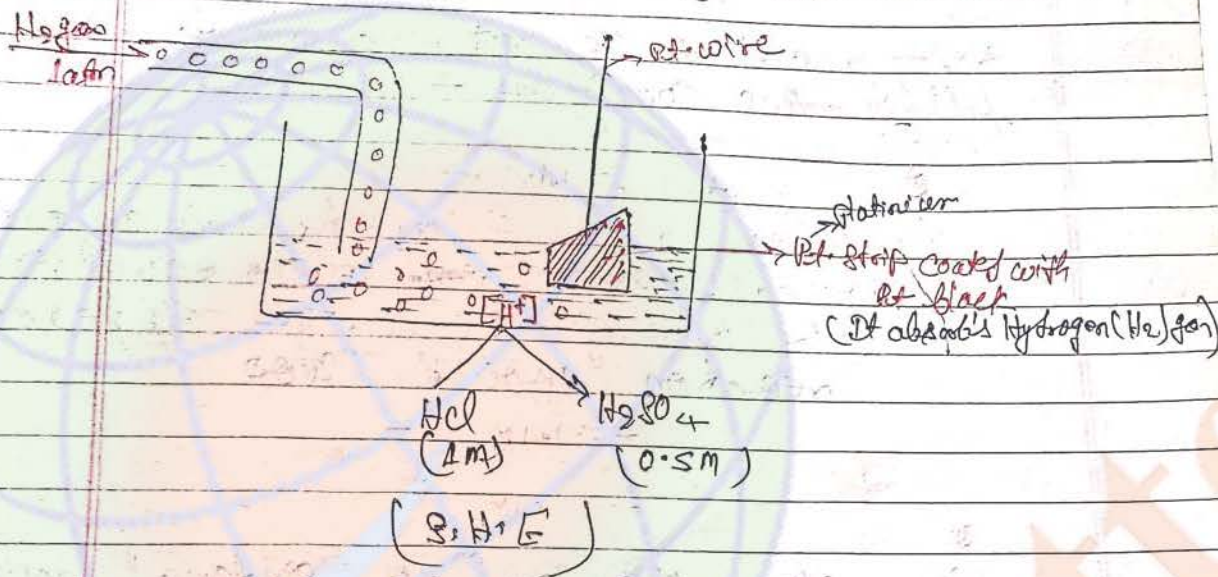 H2 gas
1 atm
Pt-wire
Platinium
Pt. Strip coated with
Pt black
(It absorb's Hydrogen (H2) gas)
[H+]
HCl
H2SO4
(1M)
(0.5M)
(S.H.E)